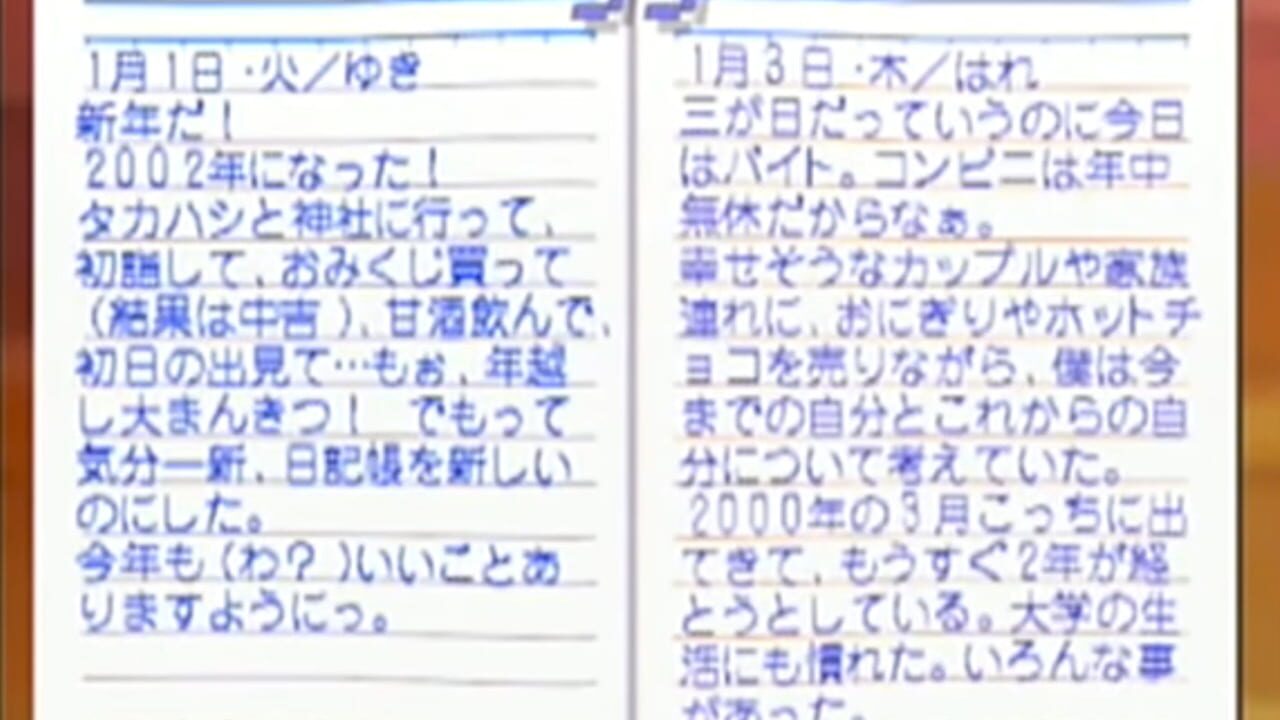 1月1日・火／ゆき
新年だ！
2002年になった！
タカハシと神社に行って、
初詣して、おみくじ買って
（結果は中吉）、甘酒飲んで、
初日の出見て…もぉ、年越
し大まんきつ！　でもって
気分一新、日記帳を新しい
のにした。
今年も（わ？）いいことあ
りますようにっ。
1月3日・木／はれ
三が日だっていうのに今日
はバイト。コンビニは年中
無休だからなぁ。
幸せそうなカップルや家族
連れに、おにぎりやホットチ
ョコを売りながら、僕は今
までの自分とこれからの自
分について考えていた。
2000年の3月こっちに出
てきて、もうすぐ2年が経
とうとしている。大学の生
活にも慣れた。いろんな事
があった。